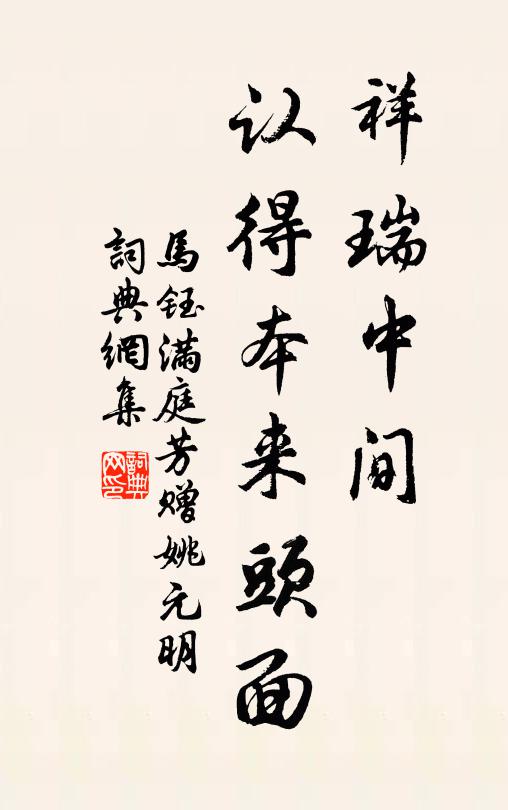 祥瑞中间
认得本来頭面
馬鈺满庭芳赠姚元明
詞典網集
詞典网印